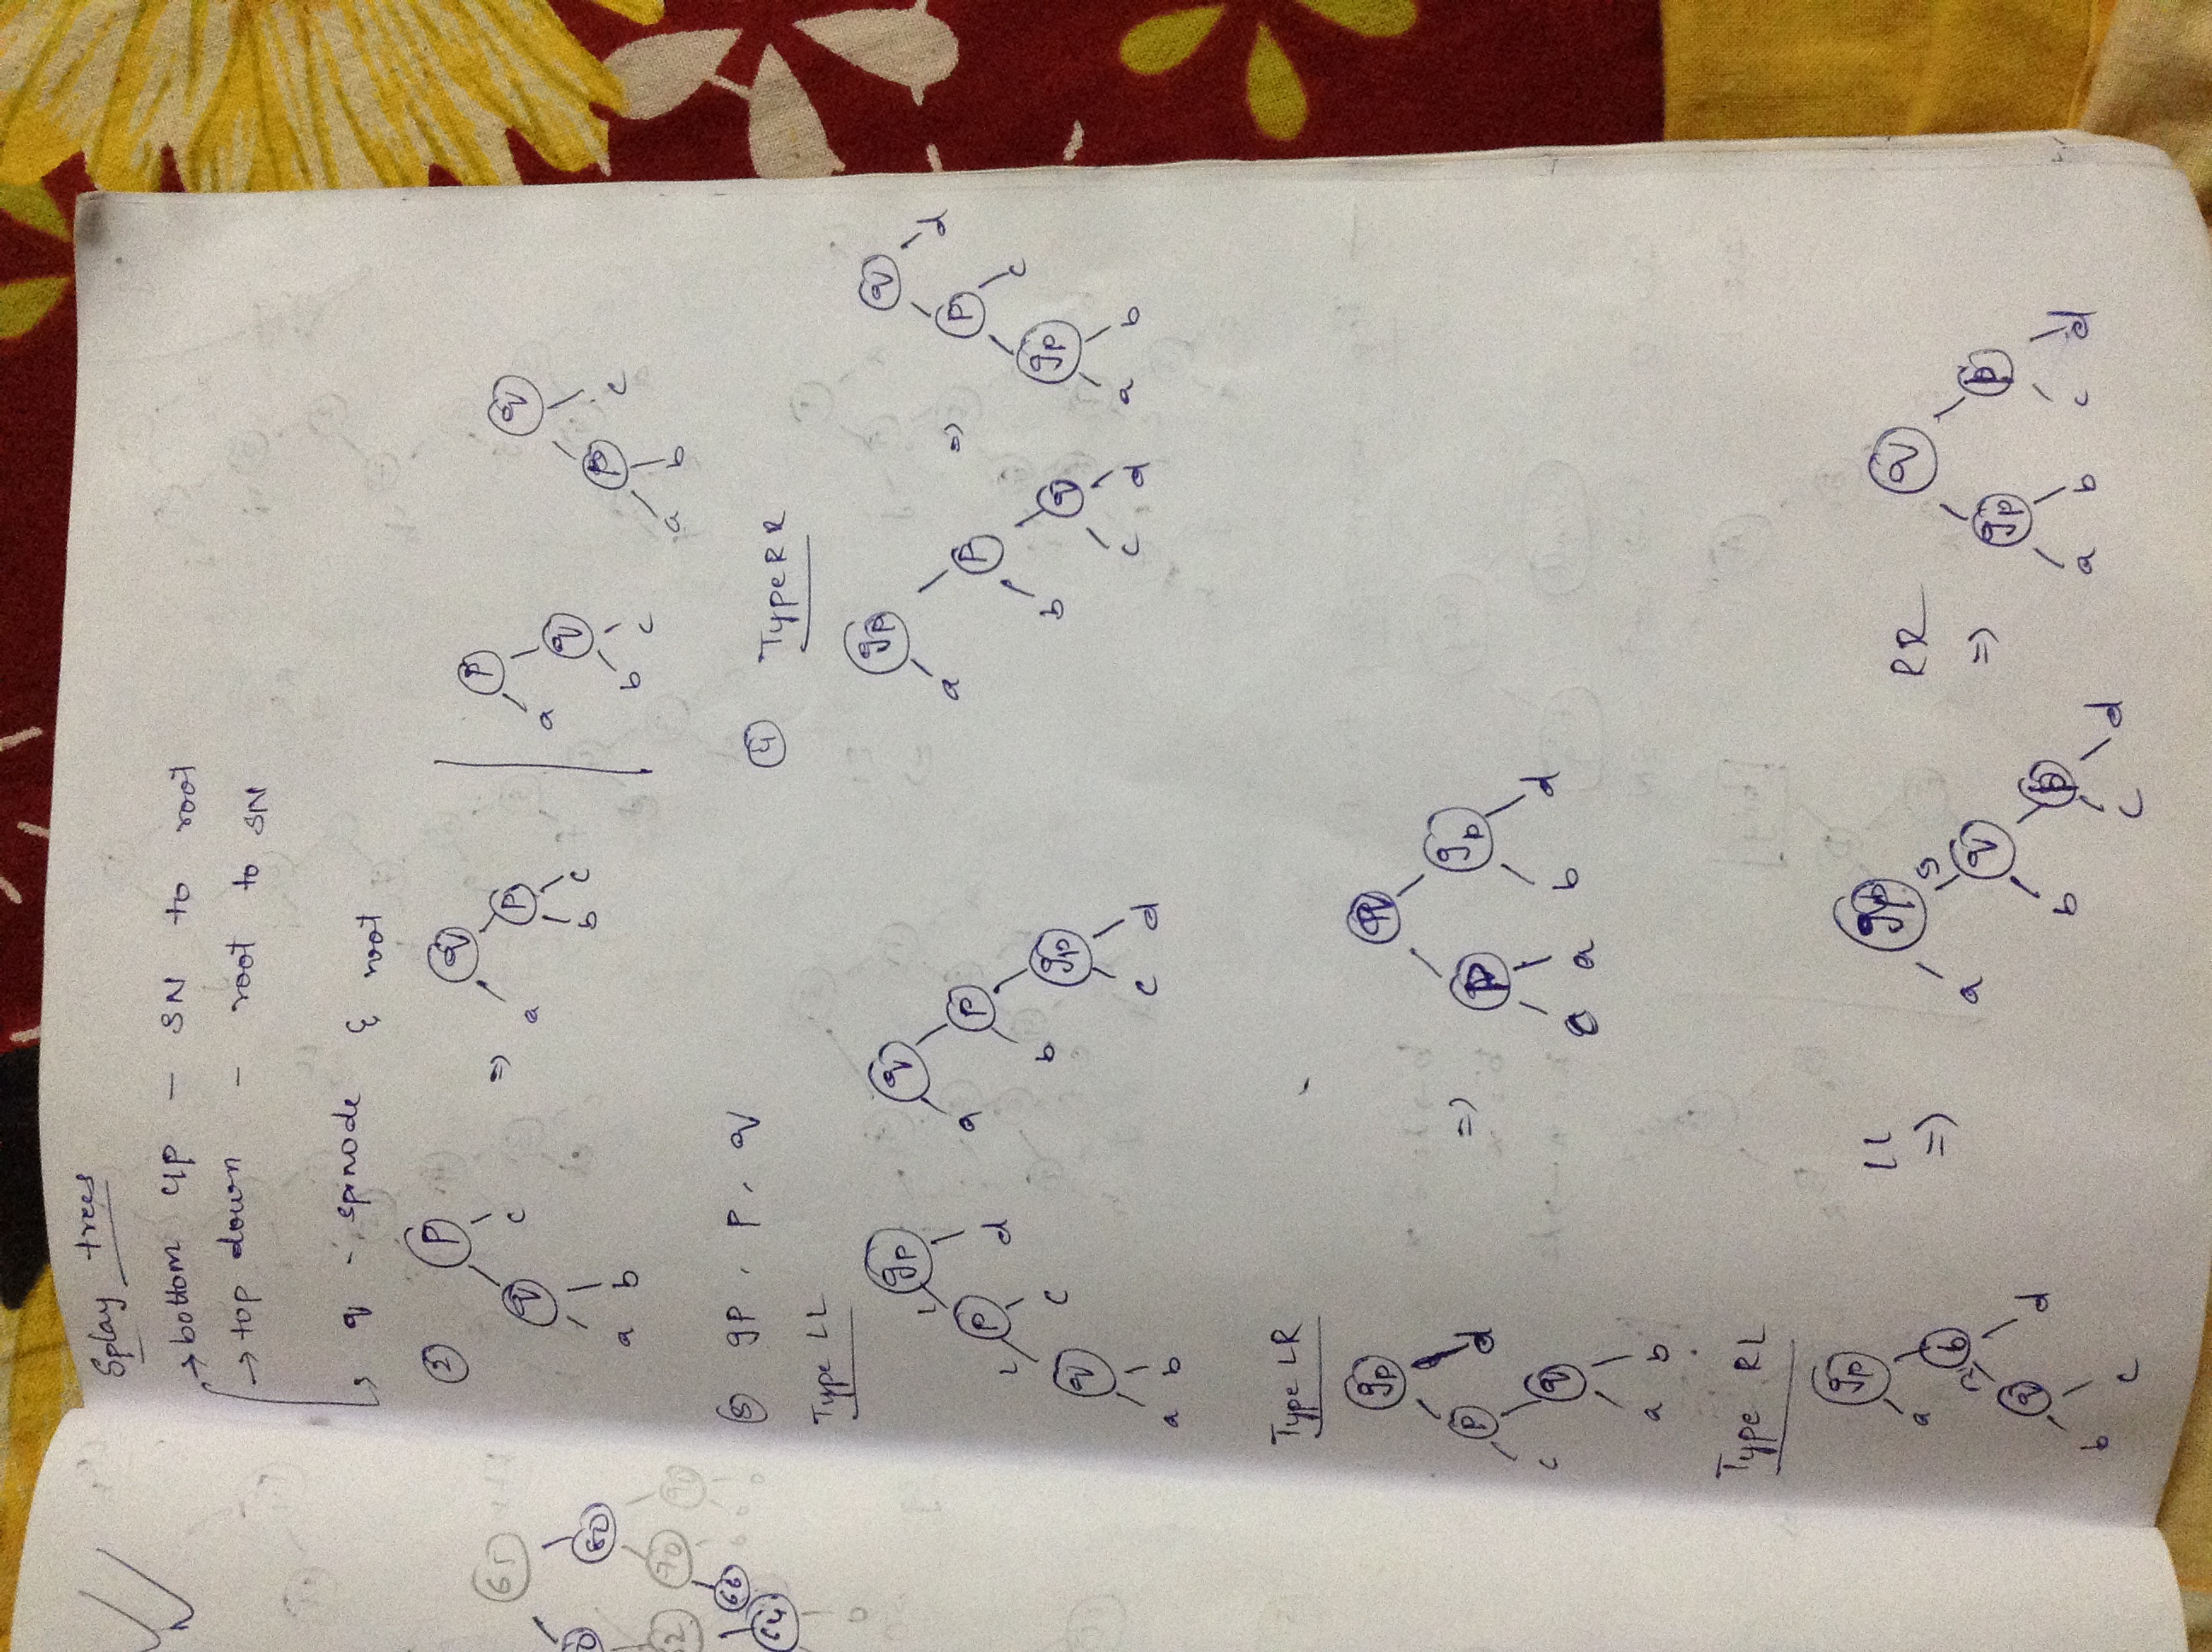 Splay trees
→ bottom up - SN to root
→ top down - root to SN
q - spnode & root
② p q c a b ⇒ q a p b c | p a q b c q p c a b
③ gp, p, q
④ Type RR
Type LL
gp L p d L q c a b q a p b gp c d
gp a p b q c d ⇒ q p d gp c a b
Type LR
gp p d c q a b ⇒ q p gp c a b d
Type RL
gp a p q d b c LL ⇒ gp a q b p c d RR ⇒ q gp p a b c d
65
80
62 70 90
66
64
b